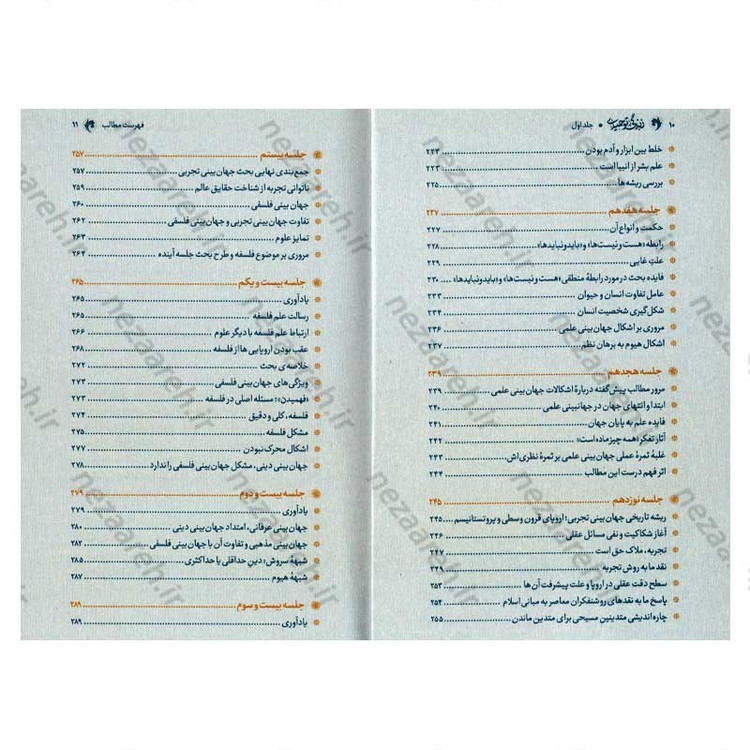 ۱۰ زندگی توحیدی • جلد اول
خلط بین ابزار و آدم بودن ۲۲۳
علم بشر از انبیا است ۲۲۳
بررسی ریشه‌ها ۲۲۵
جلسه هفدهم ۲۲۷
حکمت و انواع آن ۲۲۷
رابطه «هست و نیست‌ها» و «باید و نبایدها» ۲۲۸
علت غایی ۲۲۹
فایده بحث در مورد رابطۀ منطقی «هست و نیست‌ها» و «باید و نبایدها» ۲۳۰
عامل تفاوت انسان و حیوان ۲۳۳
شکل‌گیری شخصیت انسان ۲۳۴
مروری بر اشکال جهان بینی علمی ۲۳۶
اشکال هیوم به برهان نظم ۲۳۷
جلسه هجدهم ۲۳۹
مرور مطالب پیش گفته دربارۀ اشکالات جهان بینی علمی ۲۳۹
ابتدا و انتهای جهان در جهانبینی علمی ۲۴۰
فایده علم به پایان جهان ۲۴۱
آثار تفکر «همه چیز ماده است» ۲۴۲
غلبۀ ثمرۀ عملی جهان بینی علمی بر ثمرۀ نظری اش ۲۴۳
اثر فهم درست این مطالب ۲۴۴
جلسه نوزدهم ۲۴۵
ریشه تاریخی جهان بینی تجربی؛ اروپای قرون وسطی و پروتستانیسم ۲۴۵
آغاز شکاکیت و نفی مسائل عقلی
تجربه، ملاک حق است ۲۴۷
نقد ما به روش تجربه ۲۴۹
سطح دقت عقلی در اروپا و علت پیشرفت آن‌ها ۲۵۳
پاسخ ما به نقدهای روشنفکران معاصر به مبانی اسلام ۲۵۴
چاره اندیشی متدینین مسیحی برای متدین ماندن ۲۵۵
فهرست مطالب ۱۱
جلسه بیستم ۲۵۷
جمع‌بندی نهایی بحث جهان بینی تجربی ۲۵۷
ناتوانی تجربه از شناخت حقایق عالم ۲۵۹
جهان بینی فلسفی ۲۶۰
تفاوت جهان بینی تجربی و جهان بینی فلسفی ۲۶۲
تمایز علوم ۲۶۳
مروری بر موضوع فلسفه و طرح بحث جلسه آینده ۲۶۴
جلسه بیست و یکم ۲۶۵
یادآوری ۲۶۵
رسالت علم فلسفه ۲۶۵
ارتباط علم فلسفه با دیگر علوم ۲۶۶
عقب بودن اروپایی ها از فلسفه ۲۶۸
خلاصه‌ی بحث ۲۷۲
ویژگی‌های جهان بینی فلسفی ۲۷۳
«فهمیدن»؛ مسئله اصلی در فلسفه ۲۷۳
فلسفه، کلی و دقیق ۲۷۴
مشکل فلسفه ۲۷۵
اشکال محرک نبودن ۲۷۷
جهان بینی دینی، مشکل جهان بینی فلسفی را ندارد ۲۷۸
جلسه بیست و دوم ۲۷۹
یادآوری ۲۷۹
جهان بینی عرفانی، امتداد جهان بینی دینی ۲۸۰
جهان بینی مذهبی و تفاوت آن با جهان بینی فلسفی ۲۸۲
شبهۀ سروش؛ دین حداقلی یا حداکثری ۲۸۵
شبهۀ هیوم ۲۸۷
جلسه بیست و سوم ۲۸۹
یادآوری ۲۸۹
nezaareh.ir